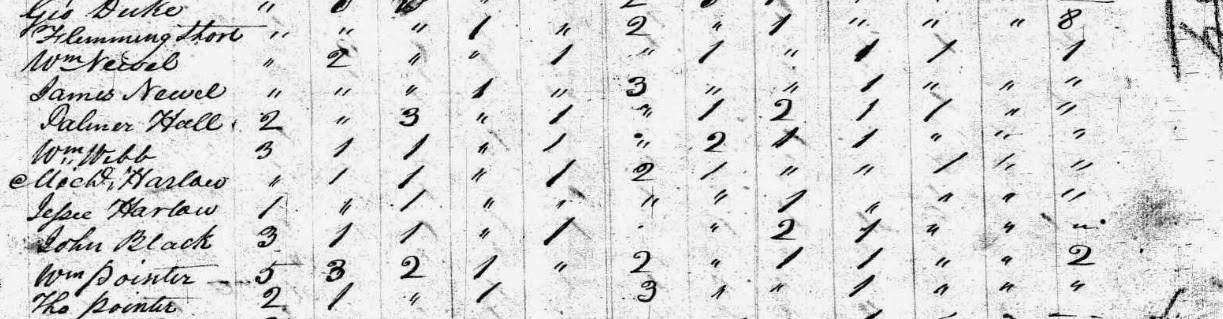 Geo Duke " 2 "
Flemming Short " " " 1 " 2 " 1 " " " 8
Wm Newel " 2 " " 1 " 1 " 1 1 1
James Newel " " " 1 " 3 " " 1 " " "
Palmer Hall 2 " 3 " 1 " 1 2 1 1 " "
Wm Webb 3 1 1 " 1 " 2 1 1 " " "
Michl. Harlow " 1 1 " 1 2 1 " " 1 " "
Jesse Harlow 1 " 1 " " " " 1 " " " "
John Black 3 1 1 " 1 " 2 1 " " "
Wm Pointer 5 3 2 1 " 2 " 1 1 " " 2
Tho Pointer 2 1 " 1 3 " " 1 " " "